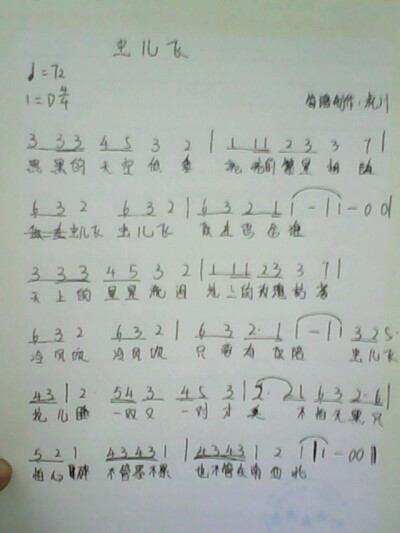 虫儿飞
♩=72
1=D 4/4 简谱制作:
3 3 3 4 5 3 2 | 1 1 1 2 3 3 7 |
黑黑的天空低垂 亮亮的繁星相随
6 3 2 6 3 2 | 6 3 2 1 | 1 - | 1 - 0 0 |
虫儿飞 虫儿飞 你在思念谁
3 3 3 4 5 3 2 | 1 1 1 2 3 3 7 |
天上的星星流泪 地上的玫瑰枯萎
6 3 2 6 3 2 | 6 3 2· 1 | 1 - | 1 3 2 5·
冷风吹 冷风吹 只要有你陪 虫儿飞
4 3 1 2· 5 4 3· 4 5 3 | 2· 2 1 6 3 2· 6 |
花儿睡 一双又一对才美 不怕天黑只
5 2 1 4 3 4 3 1 | 4 3 4 3 1 2 1 | 1 - 0 0 ‖
怕心碎 不管累不累 也不管东南西北